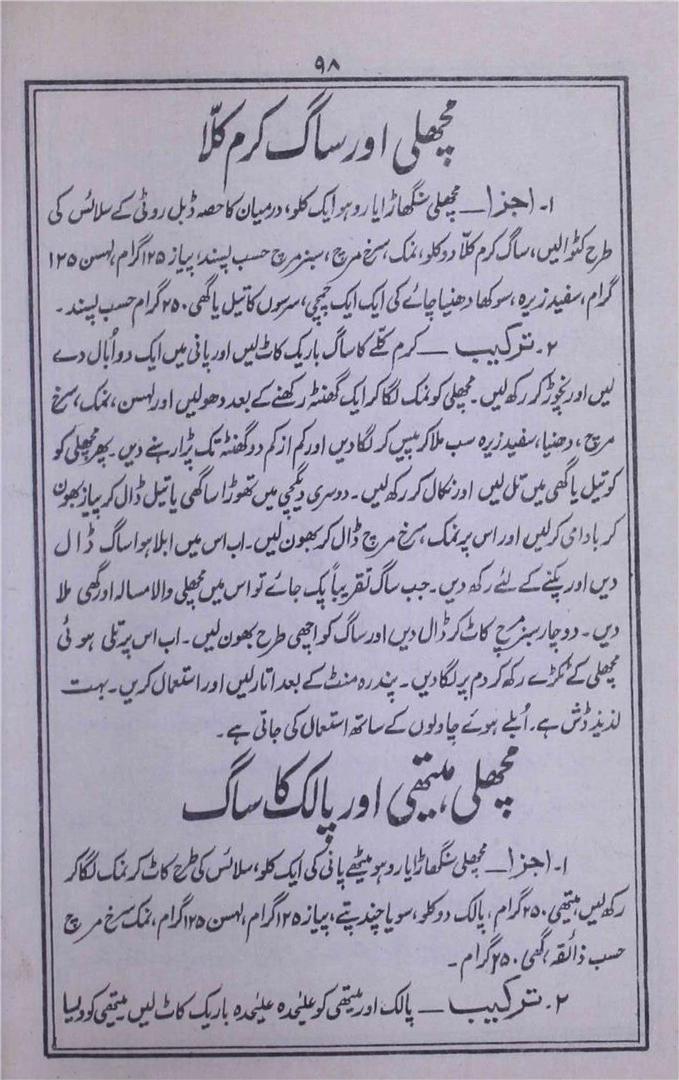 ۹۸
مچھلی اور ساگ کرم کلّا
۱۔ اجزا ــــ مچھلی سنگھاڑا یا روہو ایک کلو، درمیان کا حصہ ڈبل روٹی کے سلائس کی
طرح کٹوالیں، ساگ کرم کلّا دو کلو، نمک، سرخ مرچ، سبز مرچ حسب پسند، پیاز ۱۲۵ گرام، لہسن ۱۲۵
گرام، سفید زیرہ، سوکھا دھنیا چائے کی ایک ایک چمچی، سرسوں کا تیل یا گھی ۲۵۰ گرام حسب پسند۔
۲۔ ترکیب ــــ کرم کلّے کا ساگ باریک کاٹ لیں اور پانی میں ایک دو اُبال دے
لیں اور نچوڑ کر رکھ لیں۔ مچھلی کو نمک لگا کر ایک گھنٹہ رکھنے کے بعد دھولیں اور لہسن، نمک، سرخ
مرچ، دھنیا، سفید زیرہ سب ملا کر پیس کر لگا دیں اور کم از کم دو گھنٹہ تک پڑا رہنے دیں۔ پھر مچھلی کو
کو تیل یا گھی میں تل لیں اور نکال کر رکھ لیں۔ دوسری دیگچی میں تھوڑا سا گھی یا تیل ڈال کر پیاز بھون
کر بادامی کر لیں اور اس پر نمک، سرخ مرچ ڈال کر بھون لیں۔ اب اس میں ابلا ہوا ساگ ڈال
دیں اور پکنے کے لئے رکھ دیں۔ جب ساگ تقریباً پک جائے تو اس میں مچھلی والا مسالہ اور گھی ملا
دیں۔ دو چار سبز مرچ کاٹ کر ڈال دیں اور ساگ کو اچھی طرح بھون لیں۔ اب اس پر تلی ہوئی
مچھلی کے ٹکڑے رکھ کر دم پر لگا دیں۔ پندرہ منٹ کے بعد اتار لیں اور استعمال کریں۔ بہت
لذیذ ڈش ہے۔ اُبلے ہوئے چاولوں کے ساتھ استعمال کی جاتی ہے۔
مچھلی، میتھی اور پالک کا ساگ
۱۔ اجزا ــــ مچھلی سنگھاڑا یا روہو میٹھے پانی کی ایک کلو، سلائس کی طرح کاٹ کر نمک لگا کر
رکھ لیں، میتھی ۲۵۰ گرام، پالک دو کلو، سویا چند پتے، پیاز ۱۲۵ گرام، لہسن ۱۲۵ گرام، نمک سرخ مرچ
حسب ذائقہ، گھی ۲۵۰ گرام۔
۲۔ ترکیب ــــ پالک اور میتھی کو علیٰحدہ علیٰحدہ باریک کاٹ لیں میتھی کو ویسا